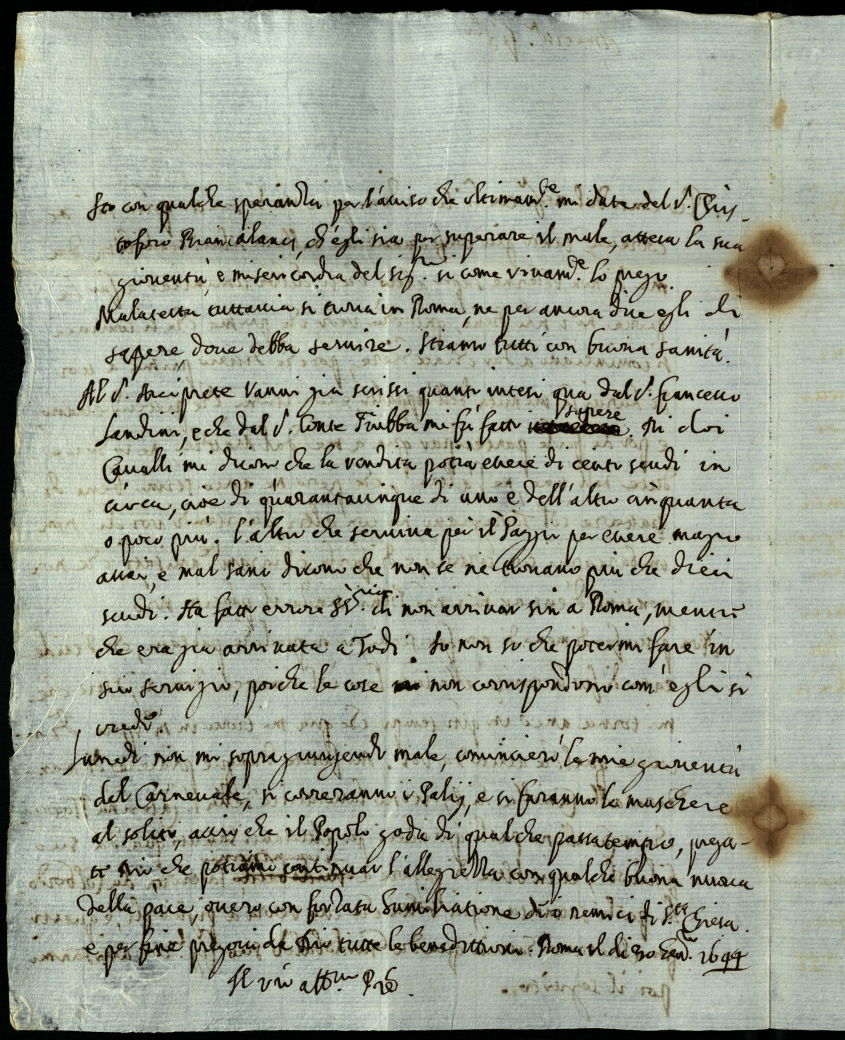 Sto con qualche speranza per l'auiso che ultimam.te mi date del S. Chris-
toforo Brancalanci, ch'egli sia per superare il male, attesa la sua
giouentù, e misericordia del sig.re si come viuam.te lo prego.
Malatesta tuttauia si troua in Roma, ne per ancora dice egli di
sapere doue debba seruire. Stiamo tutti con buona sanità.
Al S. Arciprete Vanni già scrissi quanto intesi qua dal S. francesco
Landini, e che dal S. Conte Fiubba mi fù fatto sapere. Di doi
Caualli mi dicono che la vendita potrà essere di cento scudi in
circa, cioè di quarantacinque di uno e dell'altro cinquanta
o poco più. l'altro che seruiua per il Paggio per essere magro
assai, e mal sano dicono che non se ne trouano più che dieci
scudi. Ha fatto errore di non arriuar sin a Roma, mentre
che era già arriuata a Todi. Io non so che potermi fare in
suo seruizio, poiche le cose non corrispondono com' egli si
crede.
Lunedì non mi sopragiungendo male, comincierò la mia giouentù
del Carneuale, si correranno i Palij, e si faranno le maschere
al solito, acciò che il Popolo goda di qualche passatempo, prega-
te Dio che potiamo continuar l'allegrezza con qualche buona nuoua
della pace, ouero con forzata humiliatione di nemici di S.ta Chiesa.
e per fine pregoui da Dio tutte le benedittioni. Roma il di 30 Gen.o 1644
Il vro aff.mo Pre.